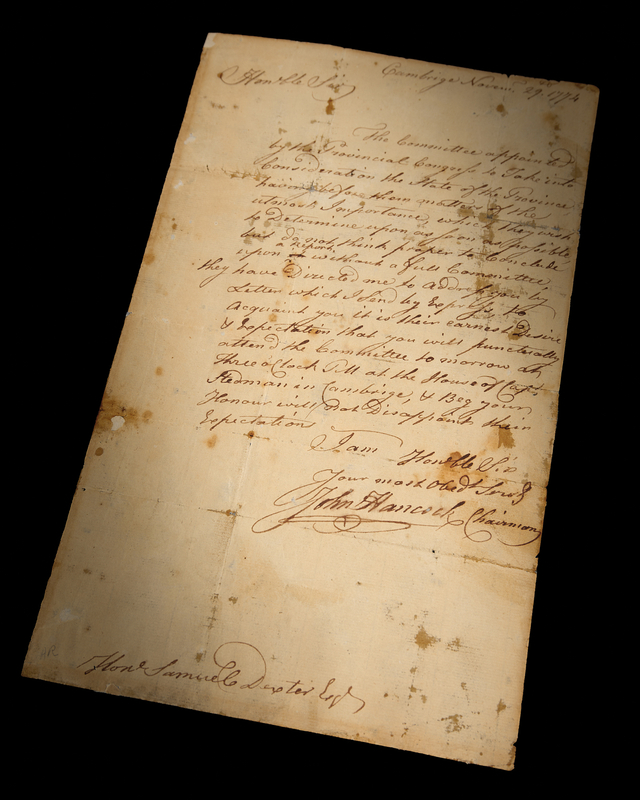 Cambrige Novem. 29. 1774
Honoble Sir
The Committee appointed
by the Provincial Congress to Take into
Consideration the State of the Province
having before them matters of the
utmost Importance, which they wish
to Determine upon as soon as possible
but do not think proper to Conclude
a report
upon without a full Committee,
they have Directed me to Address you by
Letter which I send by Express, to
Acquaint you it is their earnest Desire
& Expectation that you will punctually
attend the Committee to morrow at
Three oClock P.M at the House of Capt
Stedman in Cambrige, & I Beg your
Honour will not Disappoint their
Expectations
I am Honoble Sir
Your most Obedt Servt
John Hancock Chairman
Hone Samuel Dexter Esqr